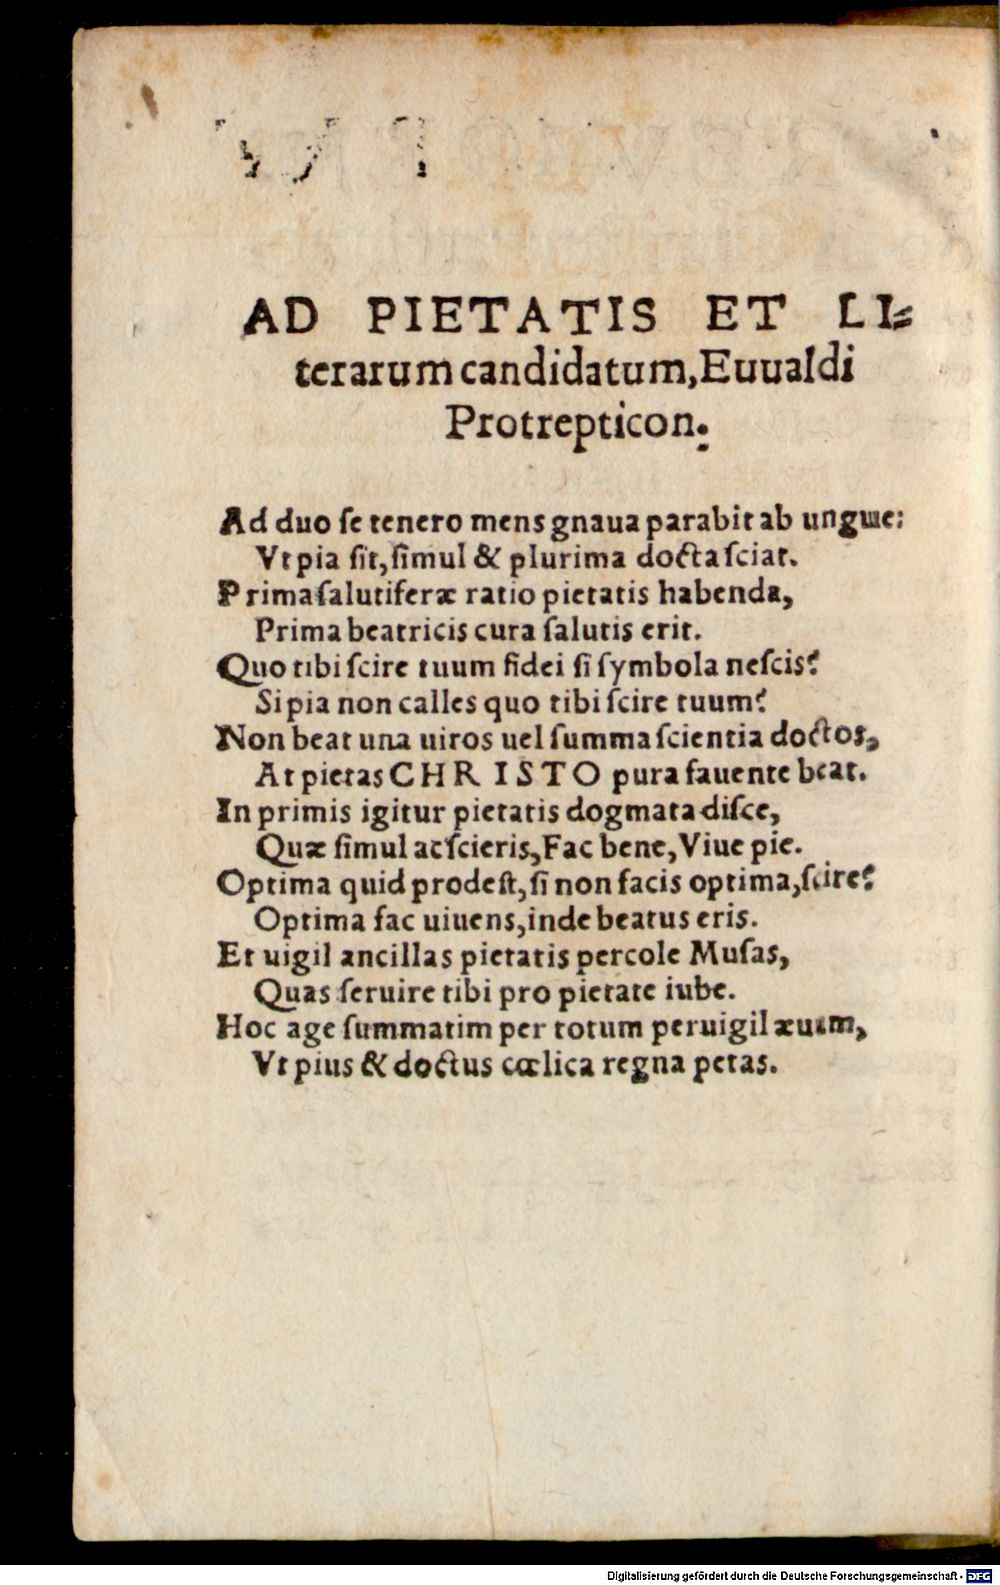 AD PIETATIS ET LI⸗
terarum candidatum, Euualdi
Protrepticon.
Ad duo ſe tenero mens gnaua parabit ab ungue:
Vt pia ſit, ſimul & plurima docta ſciat.
Prima ſalutiferæ ratio pietatis habenda,
Prima beatricis cura ſalutis erit.
Quo tibi ſcire tuum fidei ſi ſymbola neſcis?
Si pia non calles quo tibi ſcire tuum?
Non beat una uiros uel ſumma ſcientia doctos,
At pietas CHRISTO pura fauente beat.
In primis igitur pietatis dogmata diſce,
Quæ ſimul ac ſcieris, Fac bene, Viue pie.
Optima quid prodeſt, ſi non facis optima, ſcire?
Optima fac uiuens, inde beatus eris.
Et uigil ancillas pietatis percole Muſas,
Quas ſeruire tibi pro pietate iube.
Hoc age ſummatim per totum peruigil æuum,
Vt pius & doctus cœlica regna petas.
Digitalisierung gefördert durch die Deutsche Forschungsgemeinschaft - DFG